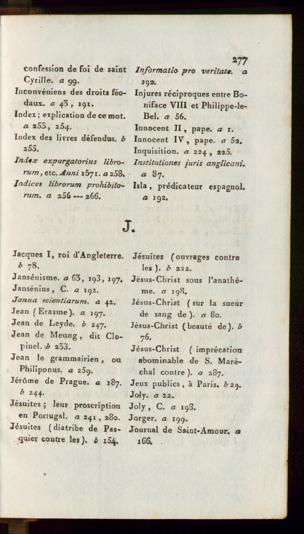 277
confession de foi de saint
Cyrille. a 99.
Inconvéniens des droits féo-
daux. a 43, 191.
Index; explication de ce mot.
a 253, 254.
Index des livres défendus. b
255.
Index expurgatorius libro-
rum, etc. Anni 1571. a 258.
Indices librorum prohibito-
rum. a 256 — 266.
Informatio pro veritate. a
192.
Injures réciproques entre Bo-
niface VIII et Philippe-le-
Bel. a 56.
Innocent II, pape. a 1.
Innocent IV, pape. a 52.
Inquisition. a 224, 225.
Institutiones juris anglicani.
a 87.
Isla, prédicateur espagnol.
a 192.
J.
Jacques I, roi d'Angleterre.
b 78.
Jansénisme. a 63, 193, 197.
Jansénius, C. a 192.
Janua scientiarum. a 42.
Jean (Erasme). a 197.
Jean de Leyde. b 247.
Jean de Meung, dit Clo-
pinel. b 233.
Jean le grammairien, ou
Philiponus. a 259.
Jérôme de Prague. a 187.
b 244.
Jésuites; leur proscription
en Portugal. a 241, 280.
Jésuites (diatribe de Pas-
quier contre les). b 154.
Jésuites (ouvrages contre
les). b 222.
Jésus-Christ sous l'anathê-
me. a 198.
Jésus-Christ (sur la sueur
de sang de). a 80.
Jésus-Christ (beauté de). b
76.
Jésus-Christ (imprécation
abominable de S. Maré-
chal contre). a 287.
Jeux publics, à Paris. b 29.
Joly. a 22.
Joly, C. a 198.
Jorger. a 199.
Journal de Saint-Amour. a
166.